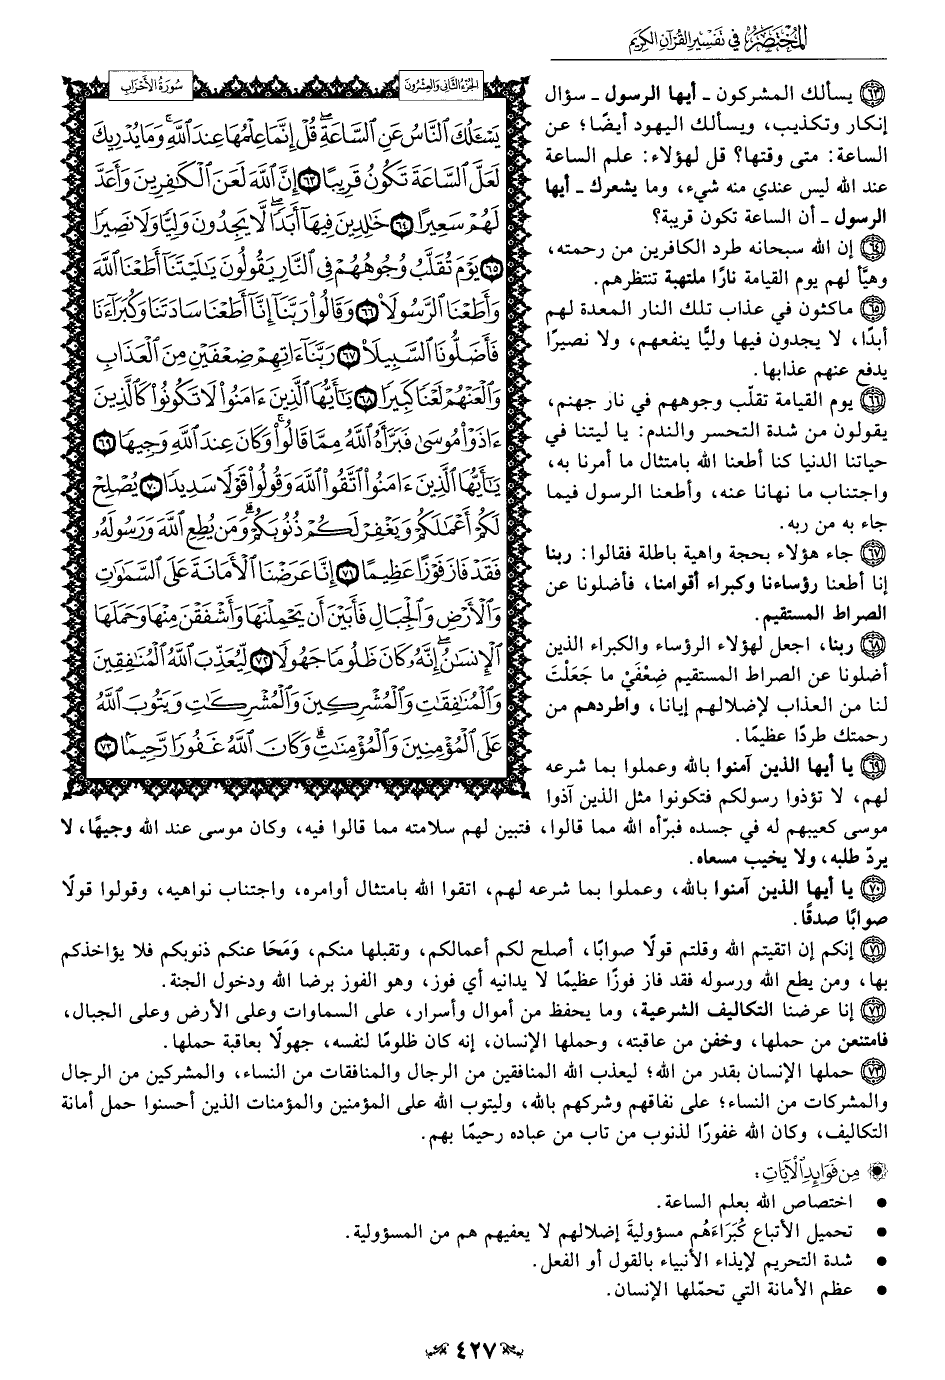 المختصر في تفسير القرآن الكريم
الجزء الثاني والعشرون
سورة الأحزاب
يَسْـَٔلُكَ ٱلنَّاسُ عَنِ ٱلسَّاعَةِۖ قُلْ إِنَّمَا عِلْمُهَا عِندَ ٱللَّهِۚ وَمَا يُدْرِيكَ
لَعَلَّ ٱلسَّاعَةَ تَكُونُ قَرِيبًا ٦٣ إِنَّ ٱللَّهَ لَعَنَ ٱلْكَٰفِرِينَ وَأَعَدَّ
لَهُمْ سَعِيرًا ٦٤ خَٰلِدِينَ فِيهَآ أَبَدًاۖ لَّا يَجِدُونَ وَلِيًّا وَلَا نَصِيرًا
٦٥ يَوْمَ تُقَلَّبُ وُجُوهُهُمْ فِي ٱلنَّارِ يَقُولُونَ يَٰلَيْتَنَآ أَطَعْنَا ٱللَّهَ
وَأَطَعْنَا ٱلرَّسُولَا۠ ٦٦ وَقَالُوا۟ رَبَّنَآ إِنَّآ أَطَعْنَا سَادَتَنَا وَكُبَرَآءَنَا
فَأَضَلُّونَا ٱلسَّبِيلَا۠ ٦٧ رَبَّنَآ ءَاتِهِمْ ضِعْفَيْنِ مِنَ ٱلْعَذَابِ
وَٱلْعَنْهُمْ لَعْنًا كَبِيرًا ٦٨ يَٰٓأَيُّهَا ٱلَّذِينَ ءَامَنُوا۟ لَا تَكُونُوا۟ كَٱلَّذِينَ
ءَاذَوْا۟ مُوسَىٰ فَبَرَّأَهُ ٱللَّهُ مِمَّا قَالُوا۟ۚ وَكَانَ عِندَ ٱللَّهِ وَجِيهًا ٦٩
يَٰٓأَيُّهَا ٱلَّذِينَ ءَامَنُوا۟ ٱتَّقُوا۟ ٱللَّهَ وَقُولُوا۟ قَوْلًا سَدِيدًا ٧٠ يُصْلِحْ
لَكُمْ أَعْمَٰلَكُمْ وَيَغْفِرْ لَكُمْ ذُنُوبَكُمْۗ وَمَن يُطِعِ ٱللَّهَ وَرَسُولَهُۥ
فَقَدْ فَازَ فَوْزًا عَظِيمًا ٧١ إِنَّا عَرَضْنَا ٱلْأَمَانَةَ عَلَى ٱلسَّمَٰوَٰتِ
وَٱلْأَرْضِ وَٱلْجِبَالِ فَأَبَيْنَ أَن يَحْمِلْنَهَا وَأَشْفَقْنَ مِنْهَا وَحَمَلَهَا
ٱلْإِنسَٰنُۖ إِنَّهُۥ كَانَ ظَلُومًا جَهُولًا ٧٢ لِّيُعَذِّبَ ٱللَّهُ ٱلْمُنَٰفِقِينَ
وَٱلْمُنَٰفِقَٰتِ وَٱلْمُشْرِكِينَ وَٱلْمُشْرِكَٰتِ وَيَتُوبَ ٱللَّهُ
عَلَى ٱلْمُؤْمِنِينَ وَٱلْمُؤْمِنَٰتِۗ وَكَانَ ٱللَّهُ غَفُورًا رَّحِيمًا ٧٣
٦٣ يسألك المشركون ـ أيها الرسول ـ سؤال
إنكار وتكذيب، ويسألك اليهود أيضًا؛ عن
الساعة: متى وقتها؟ قل لهؤلاء: علم الساعة
عند الله ليس عندي منه شيء، وما يشعرك ـ أيها
الرسول ـ أن الساعة تكون قريبة؟
٦٤ إن الله سبحانه طرد الكافرين من رحمته،
وهيَّأ لهم يوم القيامة نارًا ملتهبة تنتظرهم.
٦٥ ماكثون في عذاب تلك النار المعدة لهم
أبدًا، لا يجدون فيها وليًّا ينفعهم، ولا نصيرًا
يدفع عنهم عذابها.
٦٦ يوم القيامة تقلّب وجوههم في نار جهنم،
يقولون من شدة التحسر والندم: يا ليتنا في
حياتنا الدنيا كنا أطعنا الله بامتثال ما أمرنا به،
واجتناب ما نهانا عنه، وأطعنا الرسول فيما
جاء به من ربه.
٦٧ جاء هؤلاء بحجة واهية باطلة فقالوا: ربنا
إنا أطعنا رؤساءنا وكبراء أقوامنا، فأضلونا عن
الصراط المستقيم.
٦٨ ربنا، اجعل لهؤلاء الرؤساء والكبراء الذين
أضلونا عن الصراط المستقيم ضِعْفَيْ ما جَعَلْتَ
لنا من العذاب لإضلالهم إيانا، واطردهم من
رحمتك طردًا عظيمًا.
٦٩ يا أيها الذين آمنوا بالله وعملوا بما شرعه
لهم، لا تؤذوا رسولكم فتكونوا مثل الذين آذوا
موسى كعيبهم له في جسده فبرّأه الله مما قالوا، فتبين لهم سلامته مما قالوا فيه، وكان موسى عند الله وجيهًا، لا
يردّ طلبه، ولا يخيب مسعاه.
٧٠ يا أيها الذين آمنوا بالله، وعملوا بما شرعه لهم، اتقوا الله بامتثال أوامره، واجتناب نواهيه، وقولوا قولًا
صوابًا صدقًا.
٧١ إنكم إن اتقيتم الله وقلتم قولًا صوابًا، أصلح لكم أعمالكم، وتقبلها منكم، وَمَحَا عنكم ذنوبكم فلا يؤاخذكم
بها، ومن يطع الله ورسوله فقد فاز فوزًا عظيمًا لا يدانيه أي فوز، وهو الفوز برضا الله ودخول الجنة.
٧٢ إنا عرضنا التكاليف الشرعية، وما يحفظ من أموال وأسرار، على السماوات وعلى الأرض وعلى الجبال،
فامتنعن من حملها، وخفن من عاقبته، وحملها الإنسان، إنه كان ظلومًا لنفسه، جهولًا بعاقبة حملها.
٧٣ حملها الإنسان بقدر من الله؛ ليعذب الله المنافقين من الرجال والمنافقات من النساء، والمشركين من الرجال
والمشركات من النساء؛ على نفاقهم وشركهم بالله، وليتوب الله على المؤمنين والمؤمنات الذين أحسنوا حمل أمانة
التكاليف، وكان الله غفورًا لذنوب من تاب من عباده رحيمًا بهم.
من فوائد الآيات:
● اختصاص الله بعلم الساعة.
● تحميل الأتباع كُبَرَاءَهُم مسؤوليةَ إضلالهم لا يعفيهم هم من المسؤولية.
● شدة التحريم لإيذاء الأنبياء بالقول أو الفعل.
● عظم الأمانة التي تحمّلها الإنسان.
٤٢٧